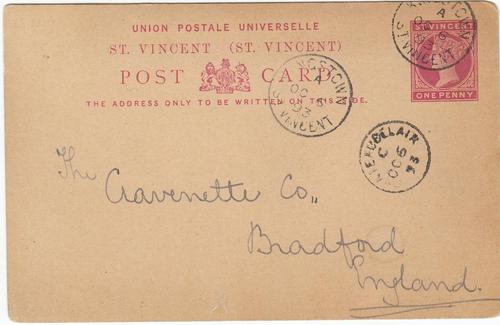 UNION POSTALE UNIVERSELLE
ST. VINCENT (ST. VINCENT)
POST CARD
THE ADDRESS ONLY TO BE WRITTEN ON THIS SIDE.
ST VINCENT
ONE PENNY
KINGSTOWN
A
OC 6
93
ST VINCENT
KINGSTOWN
A
OC 6
93
ST. VINCENT
BELAIR
C
OC 6
93
The Cravenette Co.,,
Bradford
England.